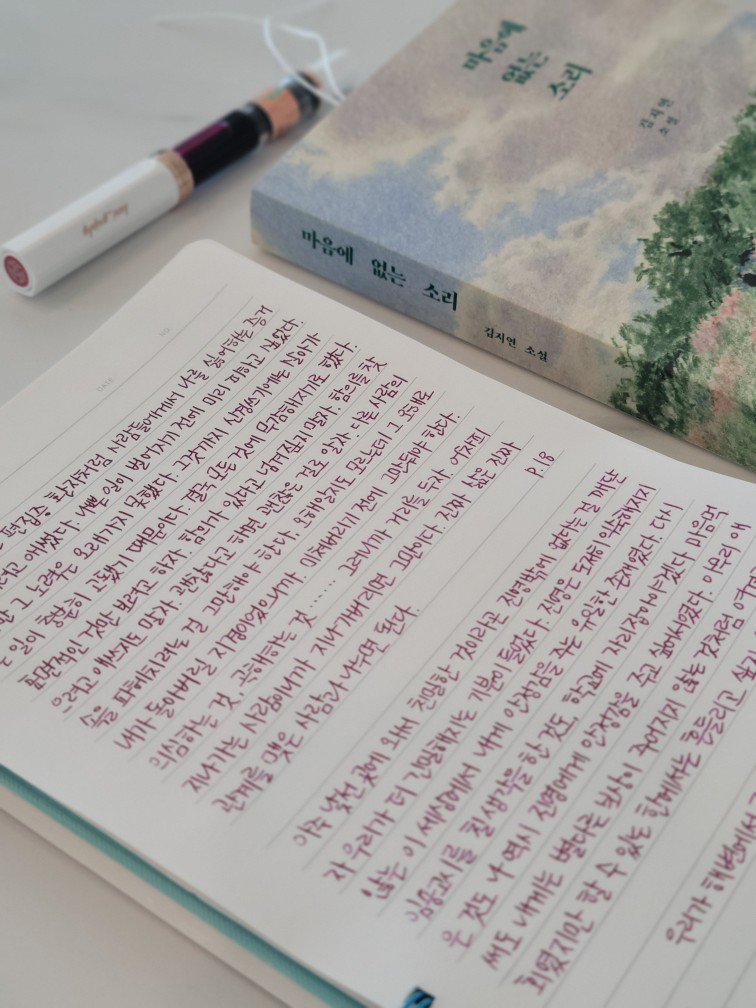 마음에
없는
소리
김지연
소설
마음에 없는 소리 김지연 소설
DATE
NO
는 편집증 환자처럼 사람들에게서 나를 싫어하는 증거
려고 애썼다. 나쁜 일이 벌어지기 전에 미리 피하고 싶었다.
만 그 노력은 오래가지 못했다. 그것까지 신경쓰기에는 살아가
는 일이 충분히 고됐기 때문이다. 결국 모든 것에 무감해지기로 했다.
표면적인 것만 보려고 하자. 함의가 있다고 넘겨짚지 말자. 함의를 찾
으려고 애쓰지도 말자. 괜찮다고 하면 괜찮은 걸로 알자. 다른 사람의
속을 파헤치려는 걸 그만해야 한다. 오해일지도 모르는데 그 오해로
내가 돌아버릴 지경이었으니까. 미쳐버리기 전에 그만둬야 한다.
의심하는 것, 곡해하는 것...... 그러니까 거리를 두자. 어차피
지나가는 사람이니까 지나가버리면 그만이다. 진짜 싶은 진짜
관계를 맺은 사람과 나누면 된다.
p.18
아주 낯선 곳에 와서 친밀한 것이라곤 진영밖에 없다는 걸 깨닫
자 우리가 더 긴밀해지는 기분이 들었다. 진영은 도무지 익숙해지지
않는 이 세상에서 내게 안정감을 주는 유일한 존재였다. 다시
임용고시를 칠 생각을 한 것도, 학교에 자리잡아야겠다 마음먹
은 것도 나 역시 진영에게 안정감을 주고 싶어서였다. 아무리 애
써도 내게는 별다른 보상이 주어지지 않는 것처럼
할 수 있는 한에서는 흔들리고
우리가 해변에서